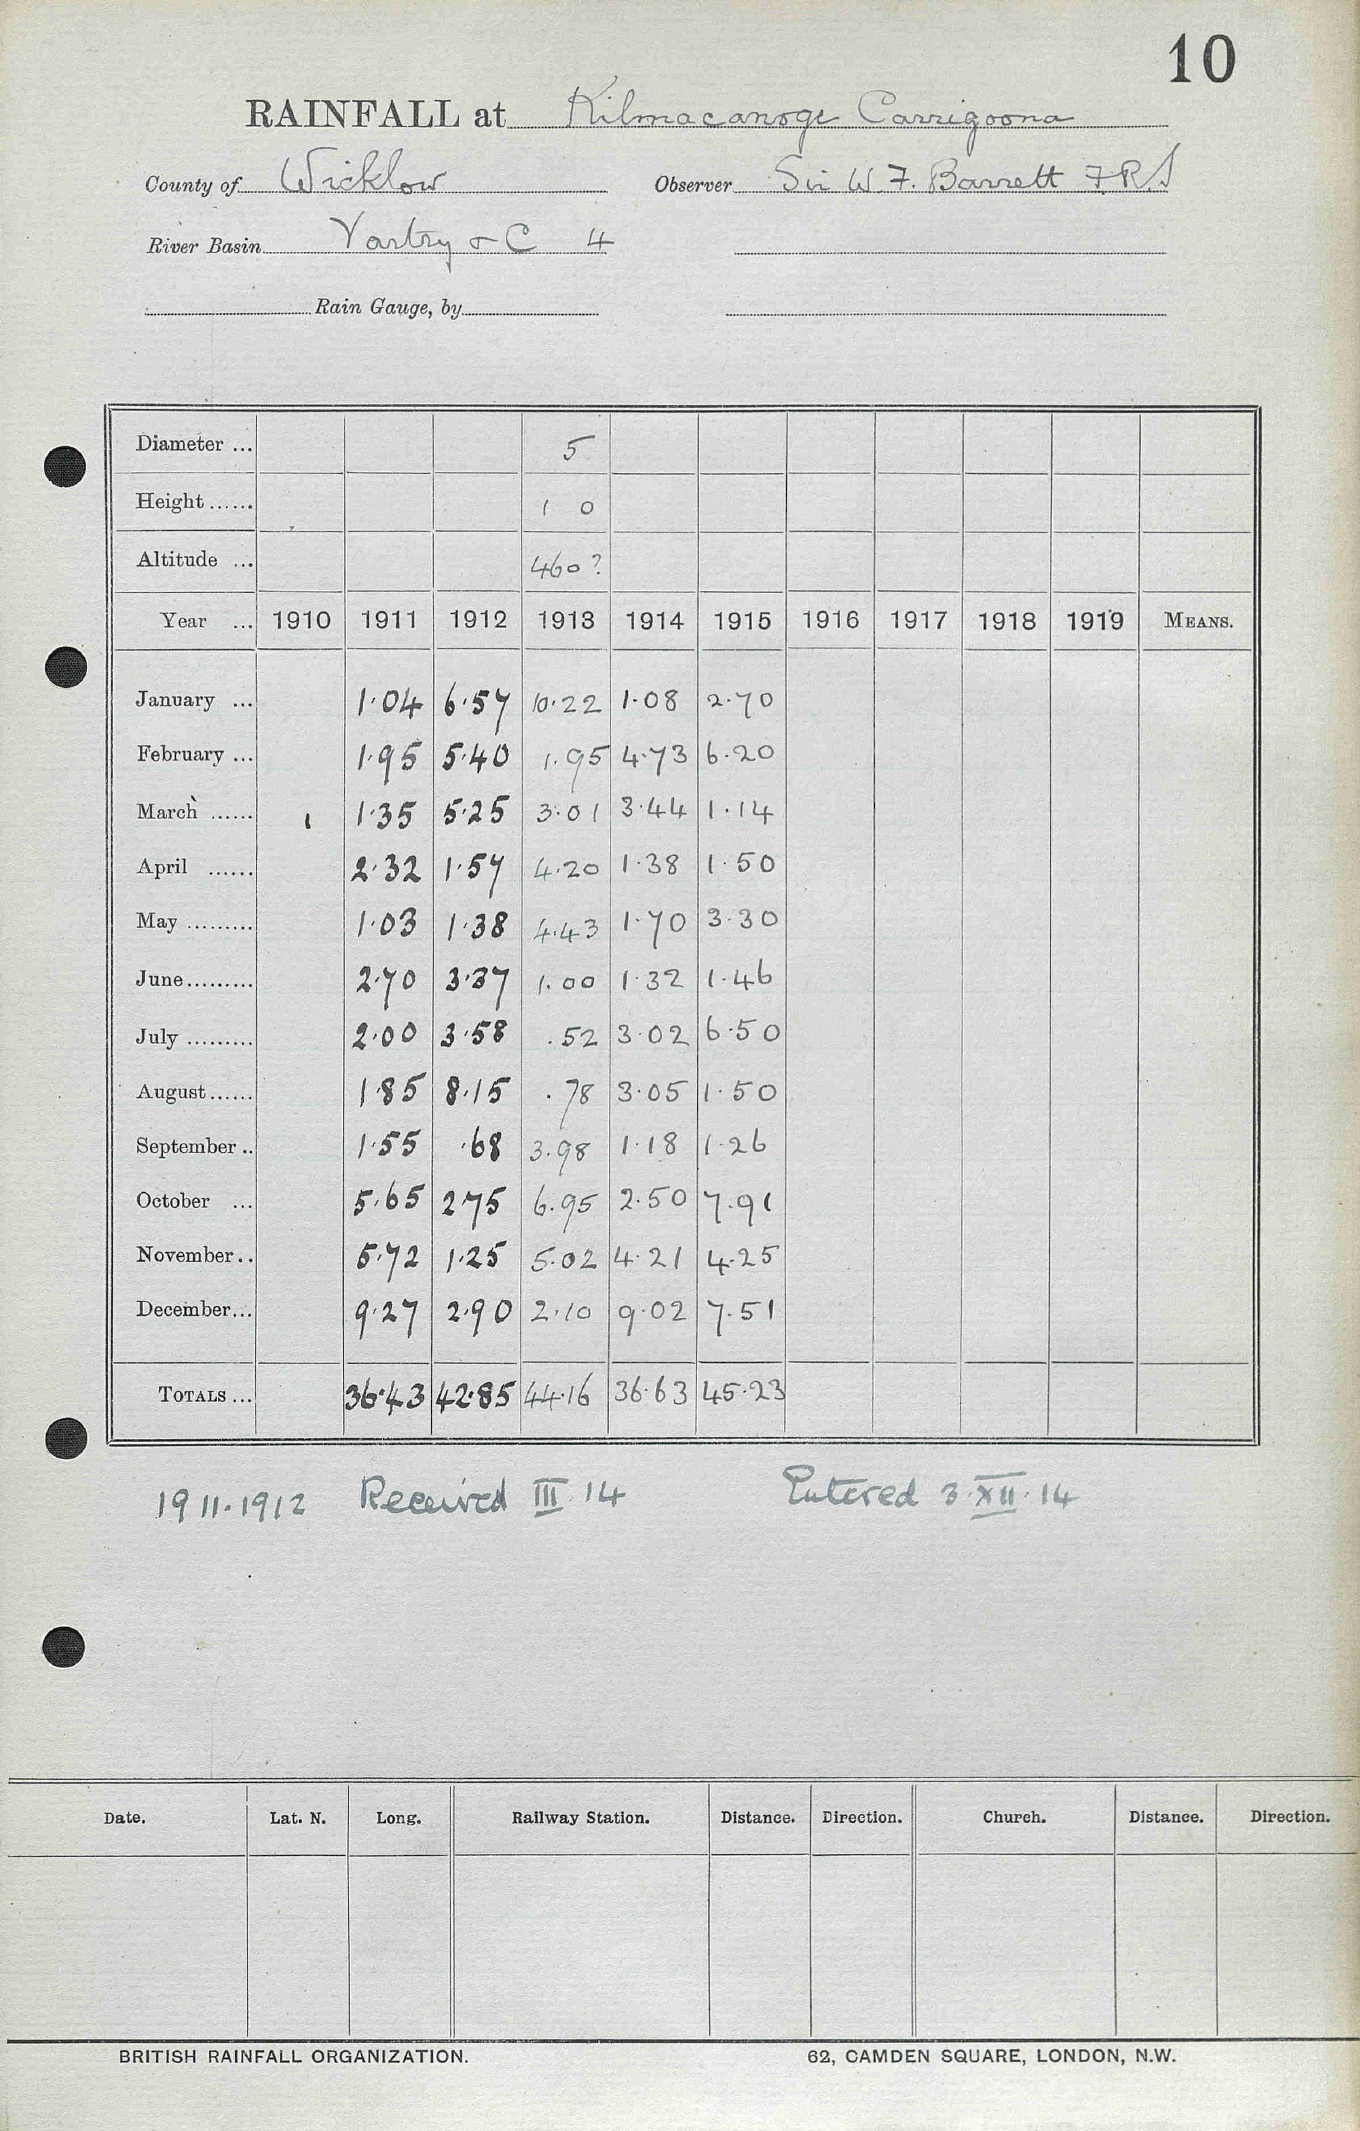 10
RAINFALL at Kilmacanoge Carrigoona
County of Wicklow Observer Sir W F. Barrett F.R.S
River Basin Vartry & C 4
Rain Gauge, by
Diameter ... 5
Height ...... 1 0
Altitude ... 460?
Year ... 1910 1911 1912 1913 1914 1915 1916 1917 1918 1919 MEANS.
January ... 1.04 6.57 10.22 1.08 2.70
February ... 1.95 5.40 1.95 4.73 6.20
March ...... 1.35 5.25 3.01 3.44 1.14
April ...... 2.32 1.57 4.20 1.38 1.50
May ......... 1.03 1.38 4.43 1.70 3.30
June ......... 2.70 3.37 1.00 1.32 1.46
July ......... 2.00 3.58 .52 3.02 6.50
August ...... 1.85 8.15 .78 3.05 1.50
September .. 1.55 .68 3.98 1.18 1.26
October ... 5.65 2.75 6.95 2.50 7.91
November .. 5.72 1.25 5.02 4.21 4.25
December ... 9.27 2.90 2.10 9.02 7.51
TOTALS ... 36.43 42.85 44.16 36.63 45.23
1911.1912 Received III 14 Entered 3.XII.14
Date. Lat. N. Long. Railway Station. Distance. Direction. Church. Distance. Direction.
BRITISH RAINFALL ORGANIZATION. 62, CAMDEN SQUARE, LONDON, N.W.